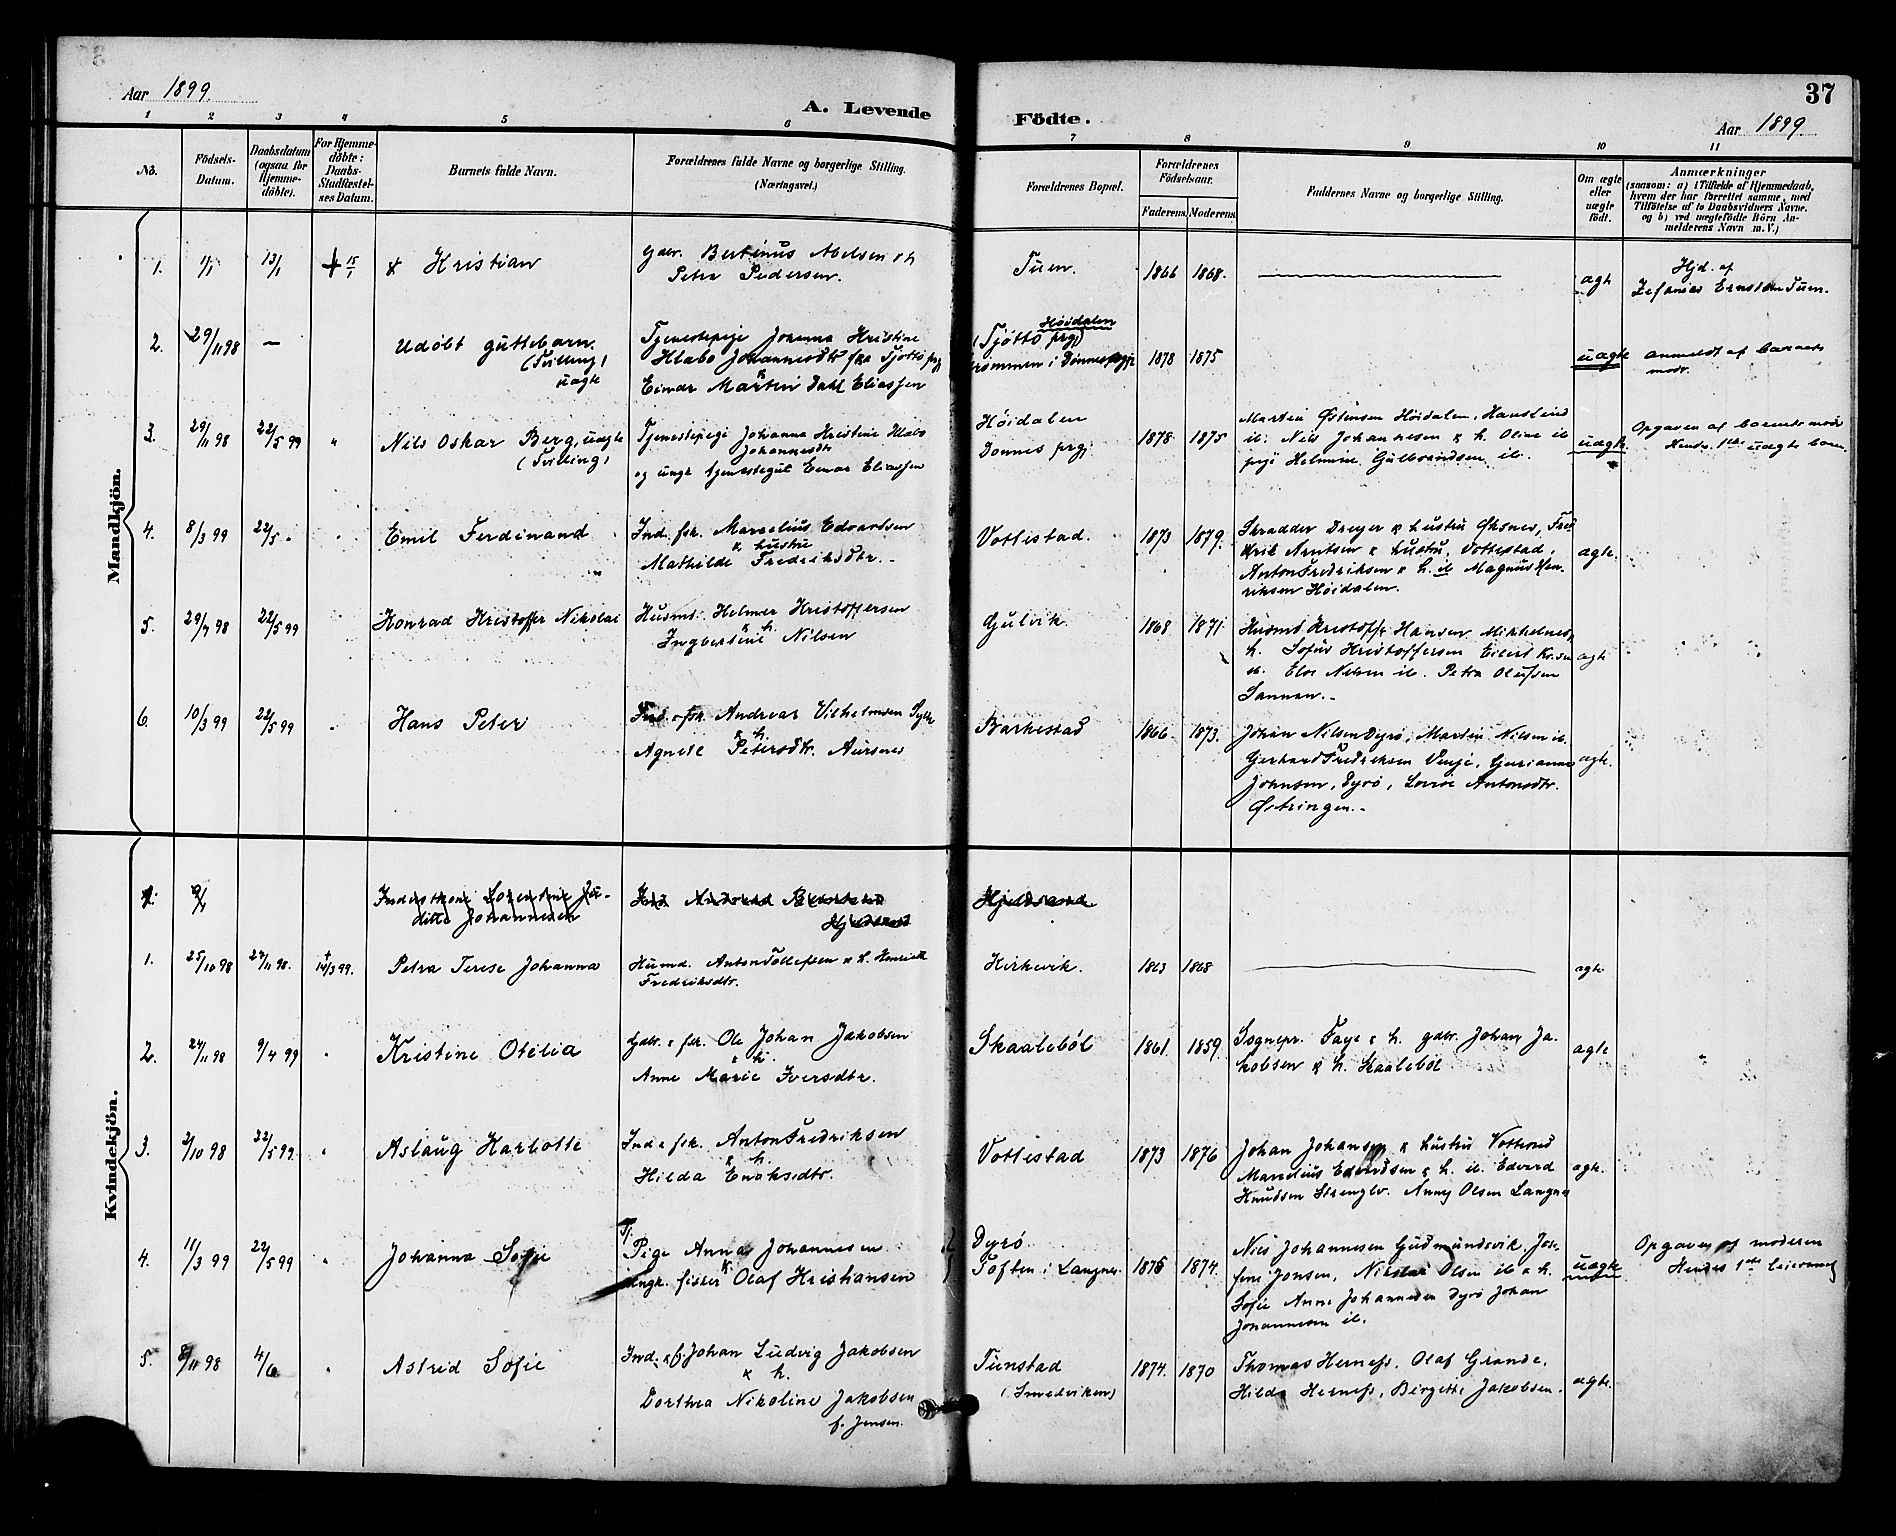 Aar 1899.
A. Levende Födte.
37
Aar 1899
1 2 3 4 5 6 7 8 9 10 11
No.
Födsels-
Datum.
Daabsdatum
(ogsaa for
Hjemme-
döbte).
For Hjemme-
döbte:
Daabs-
Stadfæstel-
ses Datum.
Barnets fulde Navn.
Forældrenes fulde Navne og borgerlige Stilling.
(Næringsvei.)
Forældrenes Bopæl.
Forældrenes
Födselsaar.
Faderens. Moderens.
Faddernes Navne og borgerlige Stilling.
Om ægte
eller
uægte
födt.
Anmærkninger
(saasom: a) i Tilfælde af Hjemmedaab,
hvem der har forrettet samme, med
Tilföielse af to Daabsvidners Navne.
og b) ved uægtefödte Börn An-
melderens Navn m. V.)
Mandkjön.
1. 1/1 13/1 + 15/1 Kristian
Gdbr. Bertinus Abelsen
Petra Pedersen.
Tuen. 1866 1868. ægte
Hjd. af
Zefanias Ernstsen Tuen.
2. 29/11 98 — Udöbt guttebarn.
(Tvilling)
uægte
Tjenestepige Johanna Kristine
Hlabo Johannesdtr fra Tjøtto prgj
&
Einar Martin Dahl Eliassen
Høidalen
(Tjøtto prgj)
i Dønnes prgj. 1878 1875 uægte
anmeldt af barnets
moder.
3. 29/11 98 22/5 99 " Nils Oskar Berg, uægte
(Tvilling)
Tjenestepige Johanna Kristine Hlabo
Johannesdtr
og ungk. tjenestegut Einar Eliassen
Høidalen
Donnes prgj 1878 1875
Martin Østensen Høidalen, Hanstind
ib. Nils Johannesen & h. Oline ib
pige Helmine Gulbrandsen ib. uægte.
Opgaven af barnets mod
Hendes 1ste uægte barn
4. 8/3 99 22/5 " " Emil Ferdinand
Ind. fsk. Marselius Edvardsen
& hustru
Mathilde Fredriksdtr.
Vottestad. 1873 1879.
Skrædder Dreyer & hustru Øksnes, Fred
rik Arntsen & hustru, Vottestad,
Anton Fredriksen & h. ib Magnus Hen-
riksen Høidalen. ægte.
5. 29/7 98 22/5 99 Konrad Kristoffer Nikolai
Husmd. Helmer Kristoffersen
& h.
Ingbertine Nilsen
Gulvik 1868 1871
Husmd Kristoffer Hansen
h. Sofus Kristoffersen Eilert
Elve Nilsen ib. Petra Olufsen
Sannan. ægte
6. 10/3 99 22/5 99 " Hans Peter
Ind. & fsk. Andreas Vilhelmsen
& h.
Agnete Petersdtr. Aursnes
Barkestad 1866 1873.
Johan Nilsen Dyrø, Martin Nilsen ib.
Gerhard Fredriksen Vinje,
Johnsen, Dyrø, Lovise Antonsdtr.
Østringen. ægte.
Kvindekjön.
Johannesen
Hjeldsand
1. 25/10 98 27/11 98. + 14/3 99. Petra Terese Johanna
Husmd. Anton Tollefsen & h. Henriette
Fredriksdtr.
Kirkevik. 1863 1868 ægte
2. 24/11 98 9/4 99 " Kristine Otelia
Gdbr. & fsk. Ole Johan Jakobsen
& h.
Anne Marie Iversdtr.
Skaalebøl 1861 1859.
Sognepr. Faye & h. gdbr. Johan Ja-
kobsen & h. Skaalebøl ægte
3. 2/10 98 22/5 99 " Aslaug Harlotte
Ind. & fsk. Anton Fredriksen
& h.
Hilda Enoksdtr.
Vottestad 1873 1876
Johan Johansen & hustru Vottestad
Marselius Edvardsen & h. ib. Edvard
Knudsen Strengelv. Anny Olsen Langnes ægte.
4. 11/3 99 22/5 99 " Johanna Sofie
Tj.
Pige Anna Johannesen
&
ungk. fisker Olaf Kristiansen
Dyrø
Toften i Langnes. 1875 1874.
Nils Johannesen Gudmundsvik, Jos-
fine Jonsen, Nikolai Olsen ib & h.
Sofie Anne Johannesen Dyrø Johan
Johannesen ib. uægte
Opgaven af moderen
Hendes 1ste leiermaal
5. 8/11 98 4/6 " Astrid Sofie
Ind. & f. Johan Ludvig Jakobsen
& h.
Dorthea Nikoline Jakobsen
f. Jensen.
Tunstad
(Smedviken) 1874. 1870
Thomas Herness, Olaf Grande,
Hilda Herness, Birgitte Jakobsen. ægte.